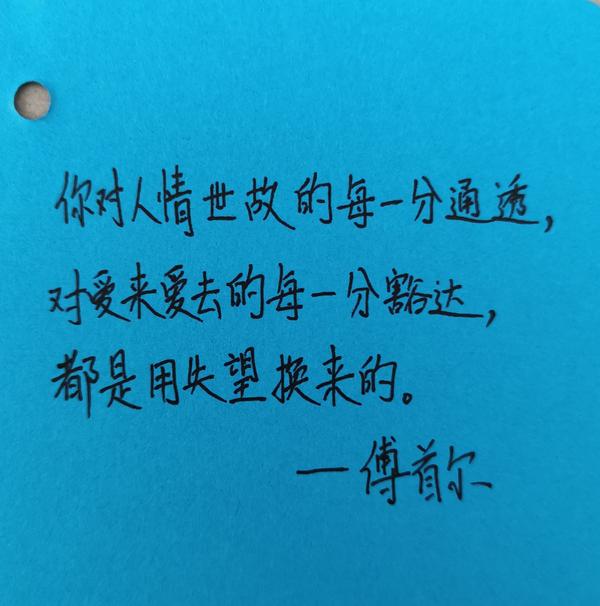 你对人情世故的每一分通透，
对爱来爱去的每一分豁达，
都是用失望换来的。
—傅首尔